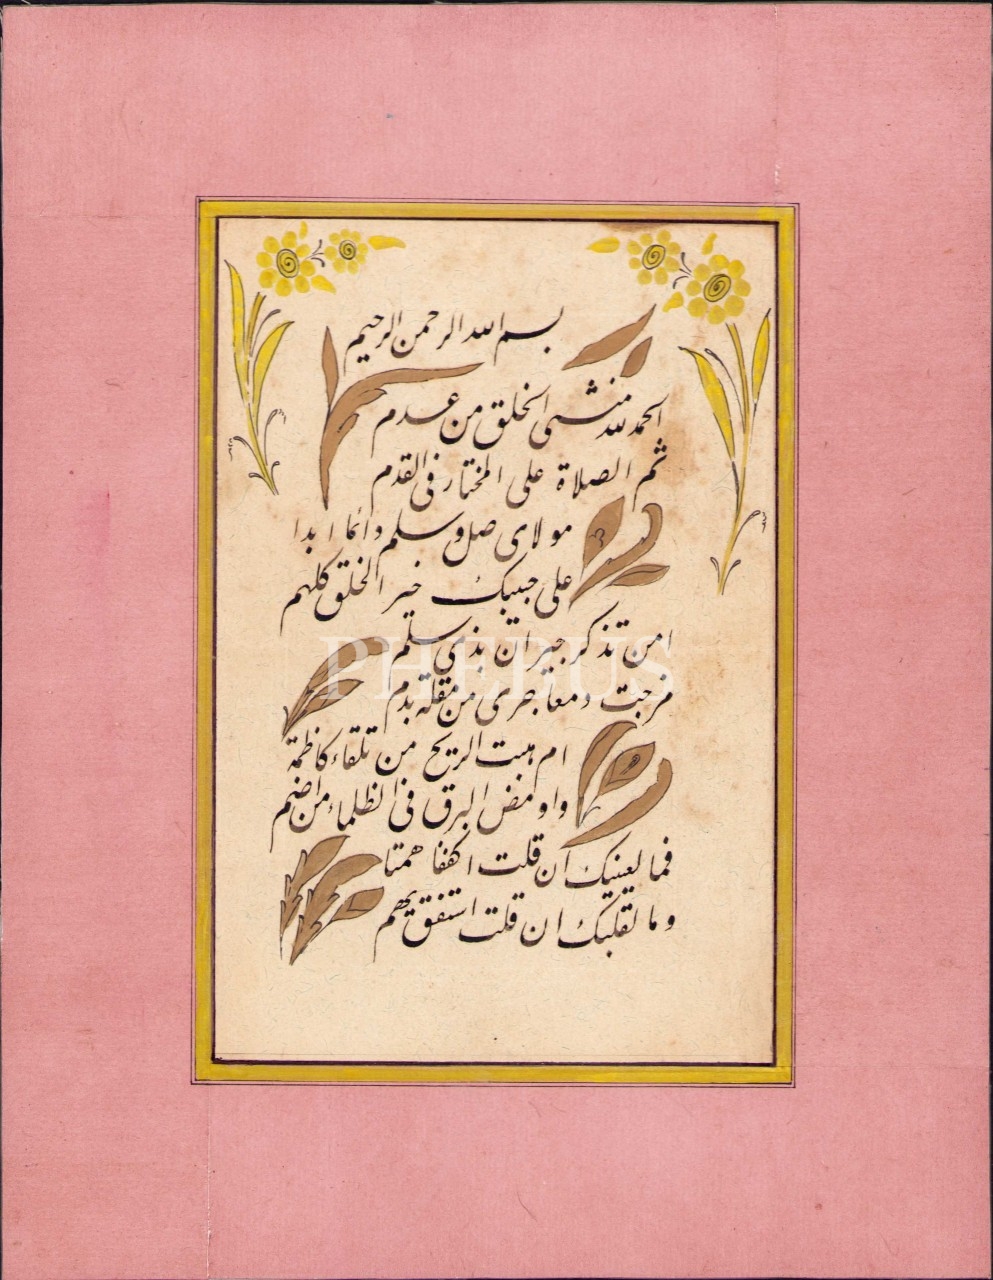 بسم الله الرحمن الرحيم
الحمد لله منشى الخلق من عدم
ثم الصلاة على المختار فى القدم
مولاى صل وسلم دائما ابدا
على حبيبك خير الخلق كلهم
امن تذكر جيران بذى سلم
مزجت دمعا جرى من مقلة بدم
ام هبت الريح من تلقاء كاظمة
واومض البرق فى الظلماء من اضم
فما لعينيك ان قلت اكففا همتا
وما لقلبك ان قلت استفق يهم
PHEBUS